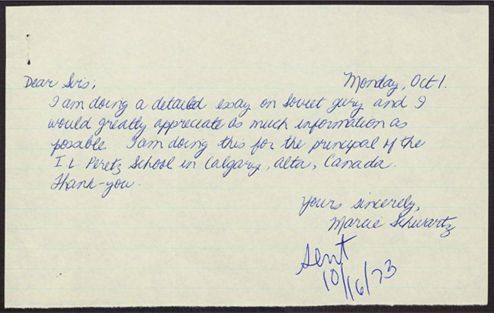 Monday, Oct 1.
Dear Sirs,
I am doing a detailed essay on Soviet jury and I
would greatly appreciate as much information as
possable. I am doing this for the principal of the
I L Peretz School in Calgary, Alta, Canada.
Thank-you.
Yours sincerely,
Marcie Schwartz
Sent
10/16/73